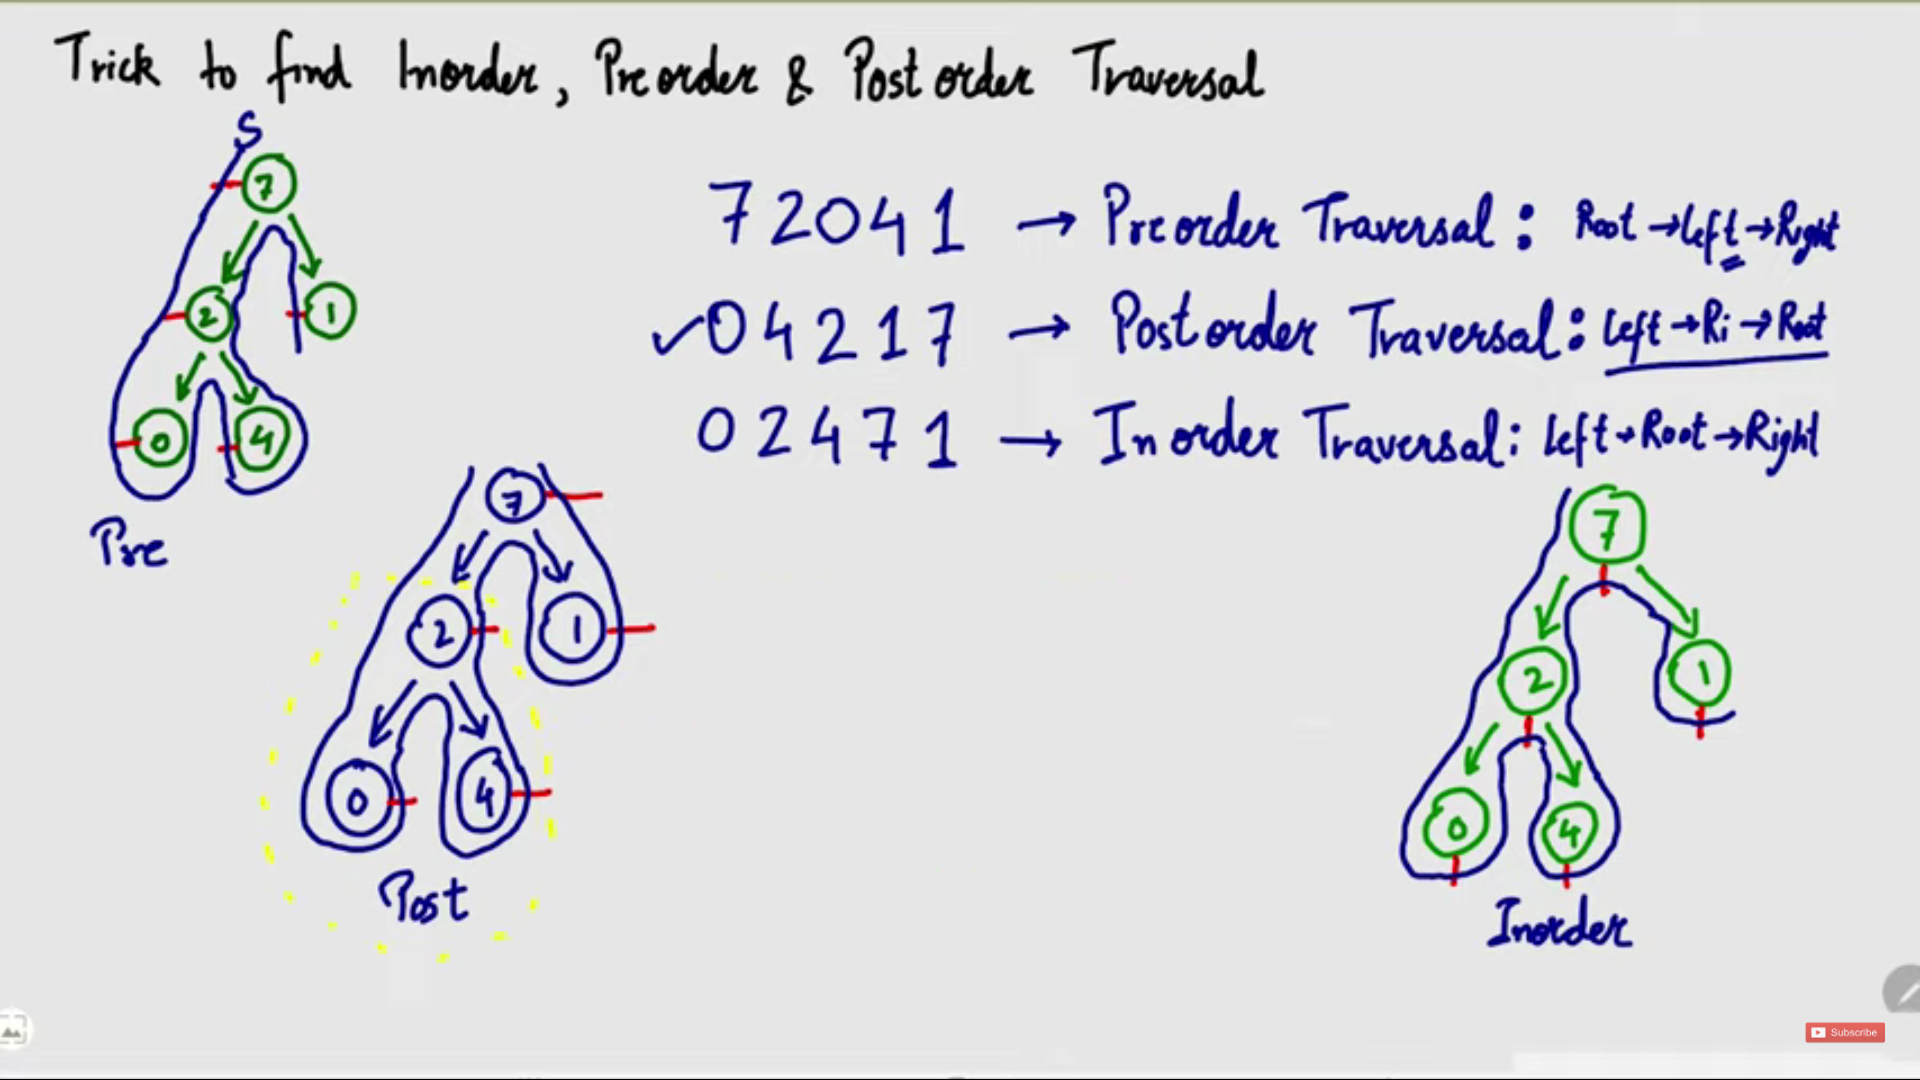 Trick to find Inorder, Preorder & Post order Traversal
S
7
2
1
0
4
Pre
7 2 0 4 1 → Preorder Traversal : Root → Left → Right
✓ 0 4 2 1 7 → Post order Traversal : Left → Ri → Root
0 2 4 7 1 → Inorder Traversal : Left → Root → Right
7
2
1
0
4
Post
7
2
1
0
4
Inorder
Subscribe